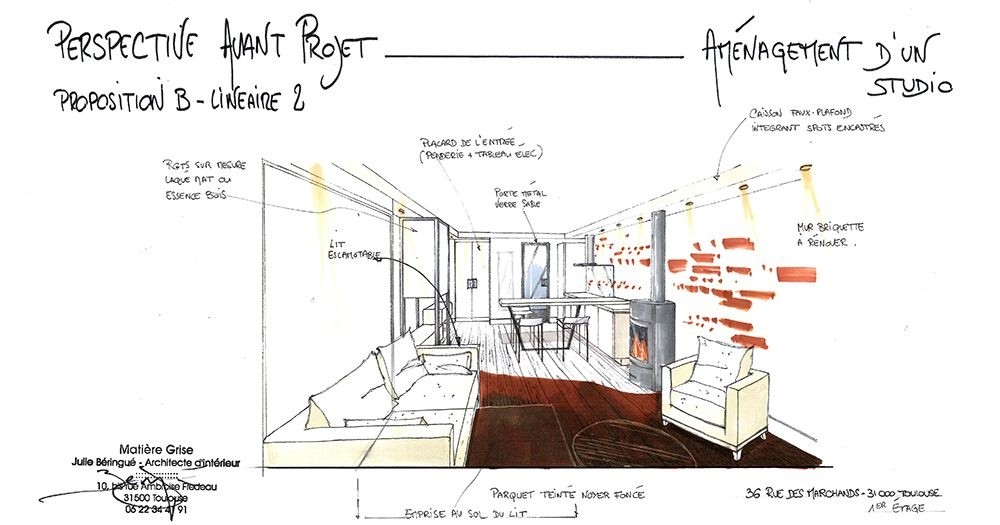 PERSPECTIVE AVANT PROJET
AMÉNAGEMENT D'UN
STUDIO
PROPOSITION B - LINEAIRE 2
CAISSON FAUX-PLAFOND
INTEGRANT SPOTS ENCASTRÉS
PLACARD DE L'ENTRÉE
(PENDERIE + TABLEAU ELEC)
RGTS SUR MESURE
LAQUÉ MAT OU
ESSENCE BOIS
PORTE MÉTAL
VERRE SABLE
LIT
ESCAMOTABLE
MUR BRIQUETTE
À RÉNOVER.
Matière Grise
Julie Béringué - Architecte d'intérieur
10, rue Ambroise
31500 Toulouse
05 22 34 91
PARQUET TEINTÉ NOYER FONCÉ
EMPRISE AU SOL DU LIT
36 RUE DES MARCHANDS - 31000 TOULOUSE
1ER ÉTAGE